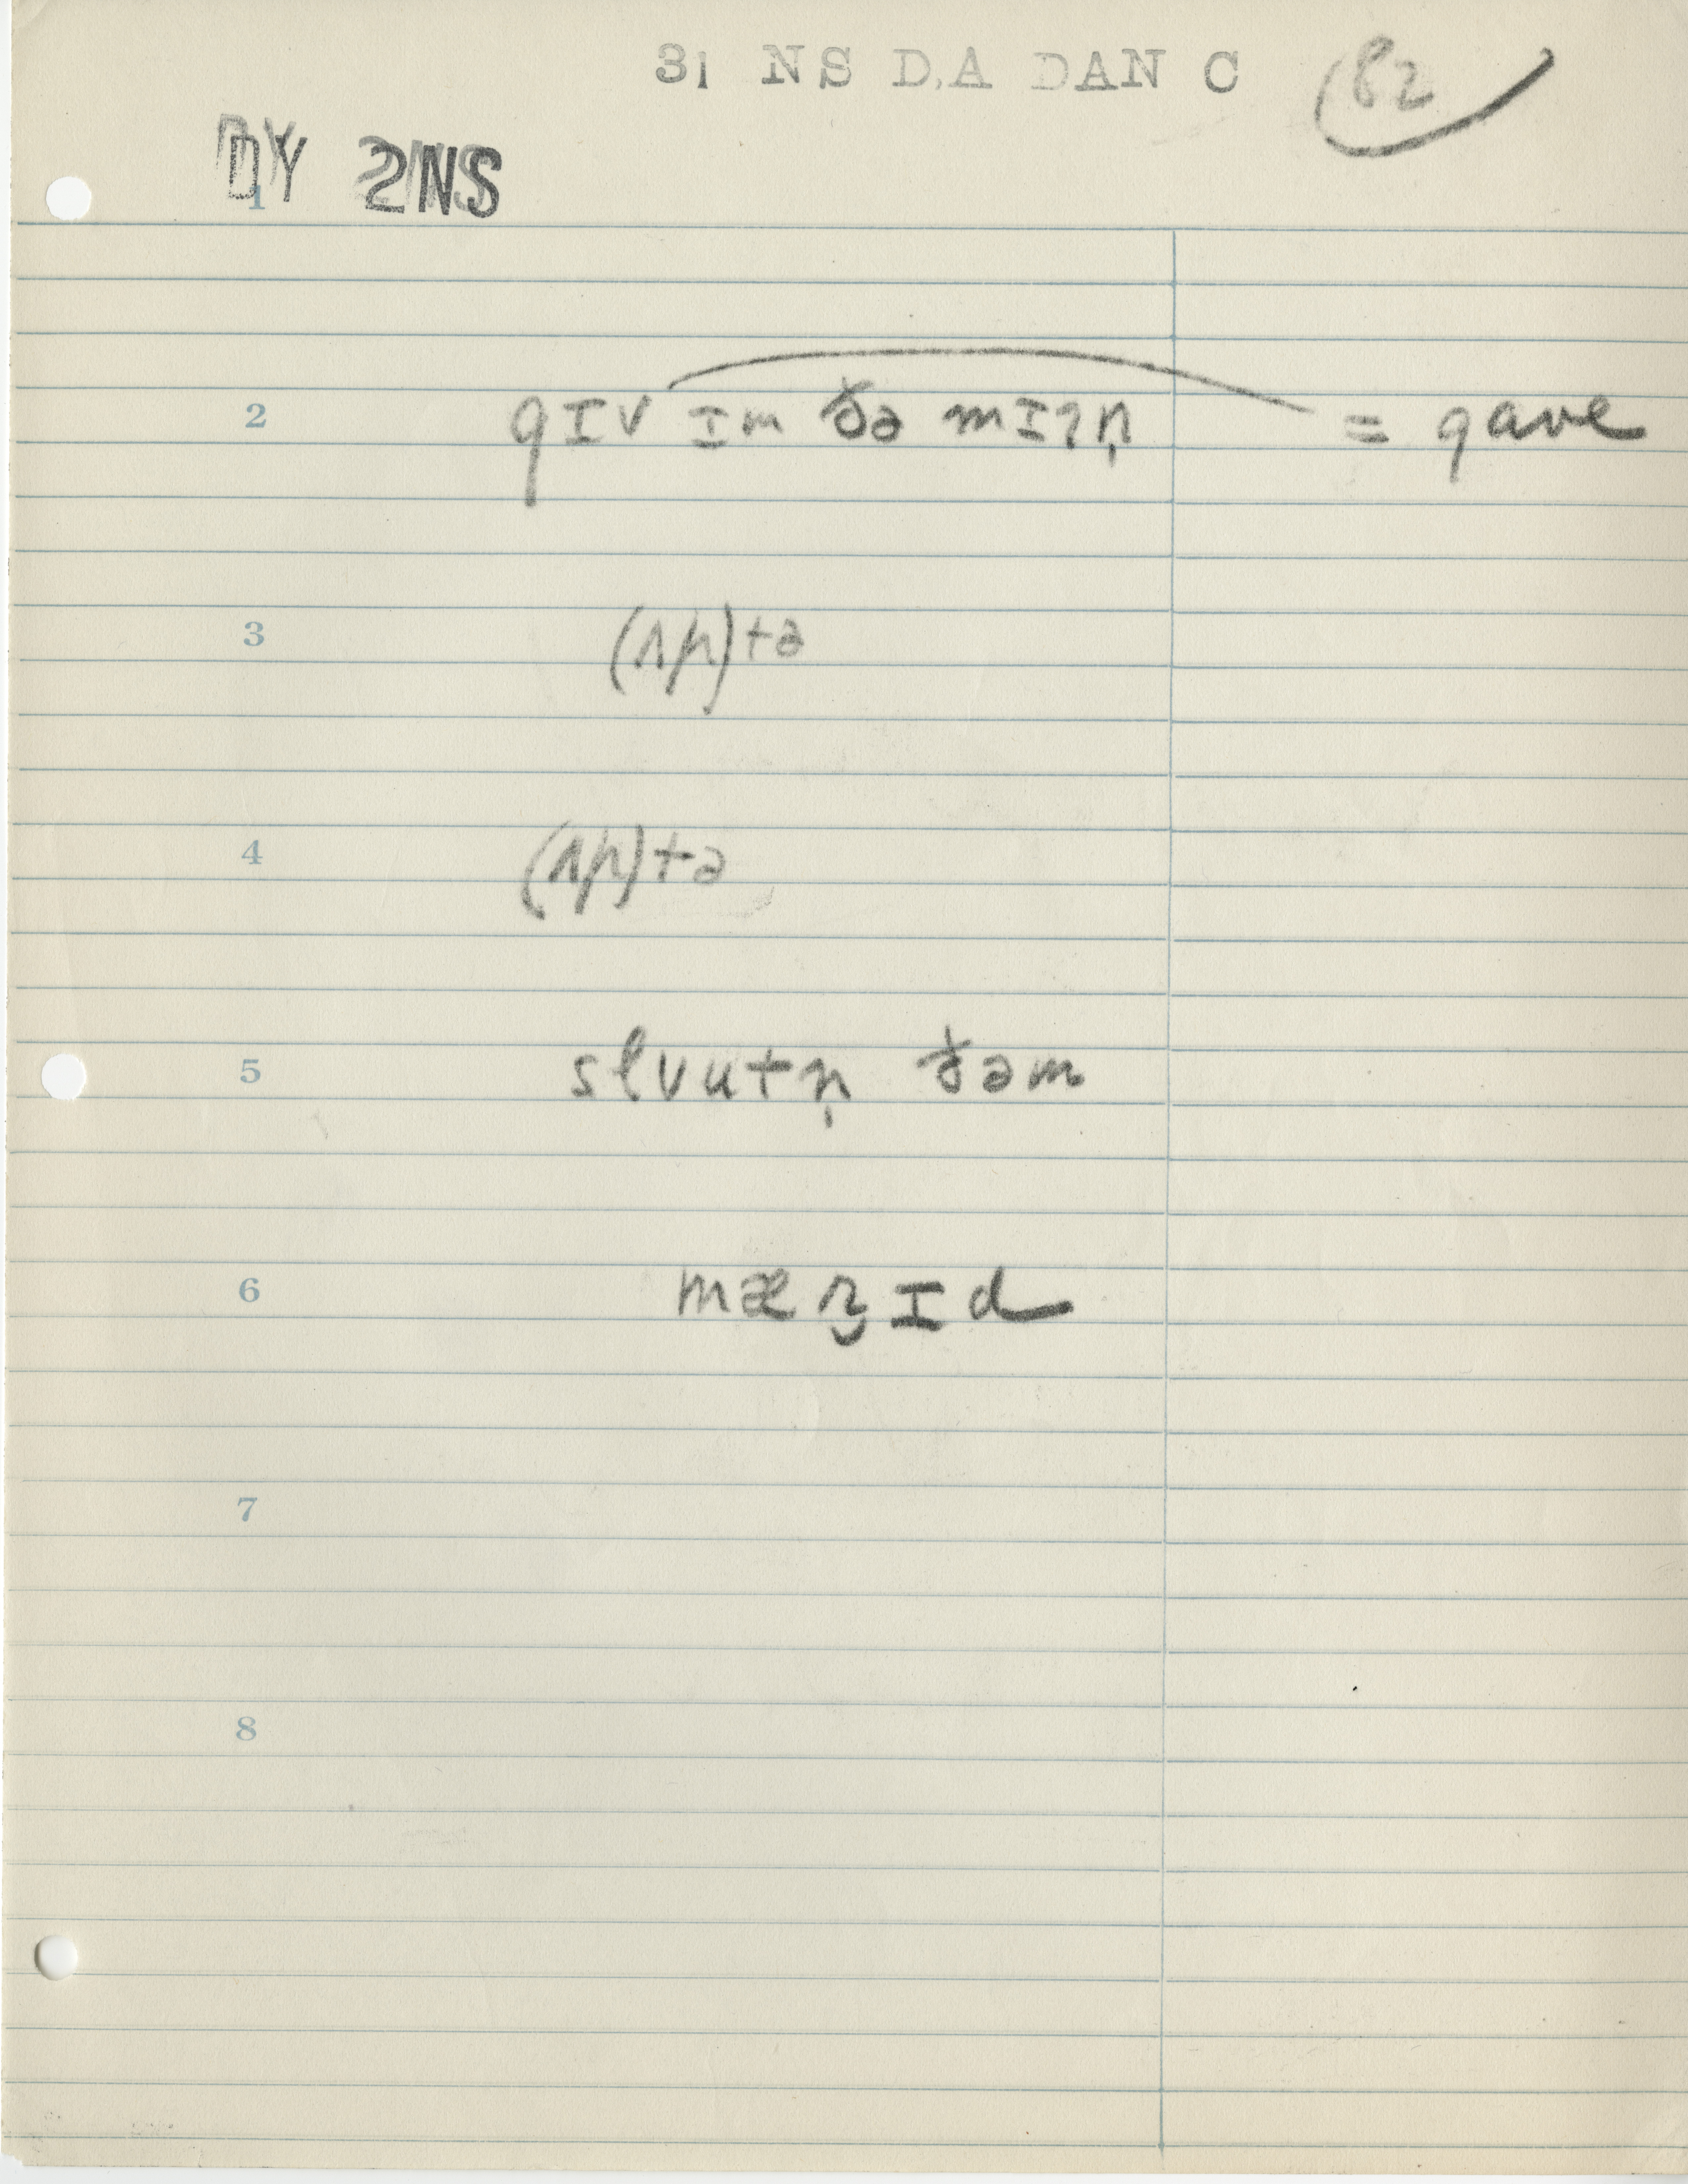 31 NS D,A DAN C 182
DY 2NS
1
2 gɪv ɪm ðə mɪʔn̩ = gave
3 (ʌp)tə
4 (ʌp)tə
5 slvutn̩ ðəm
6 mærɪd
7
8